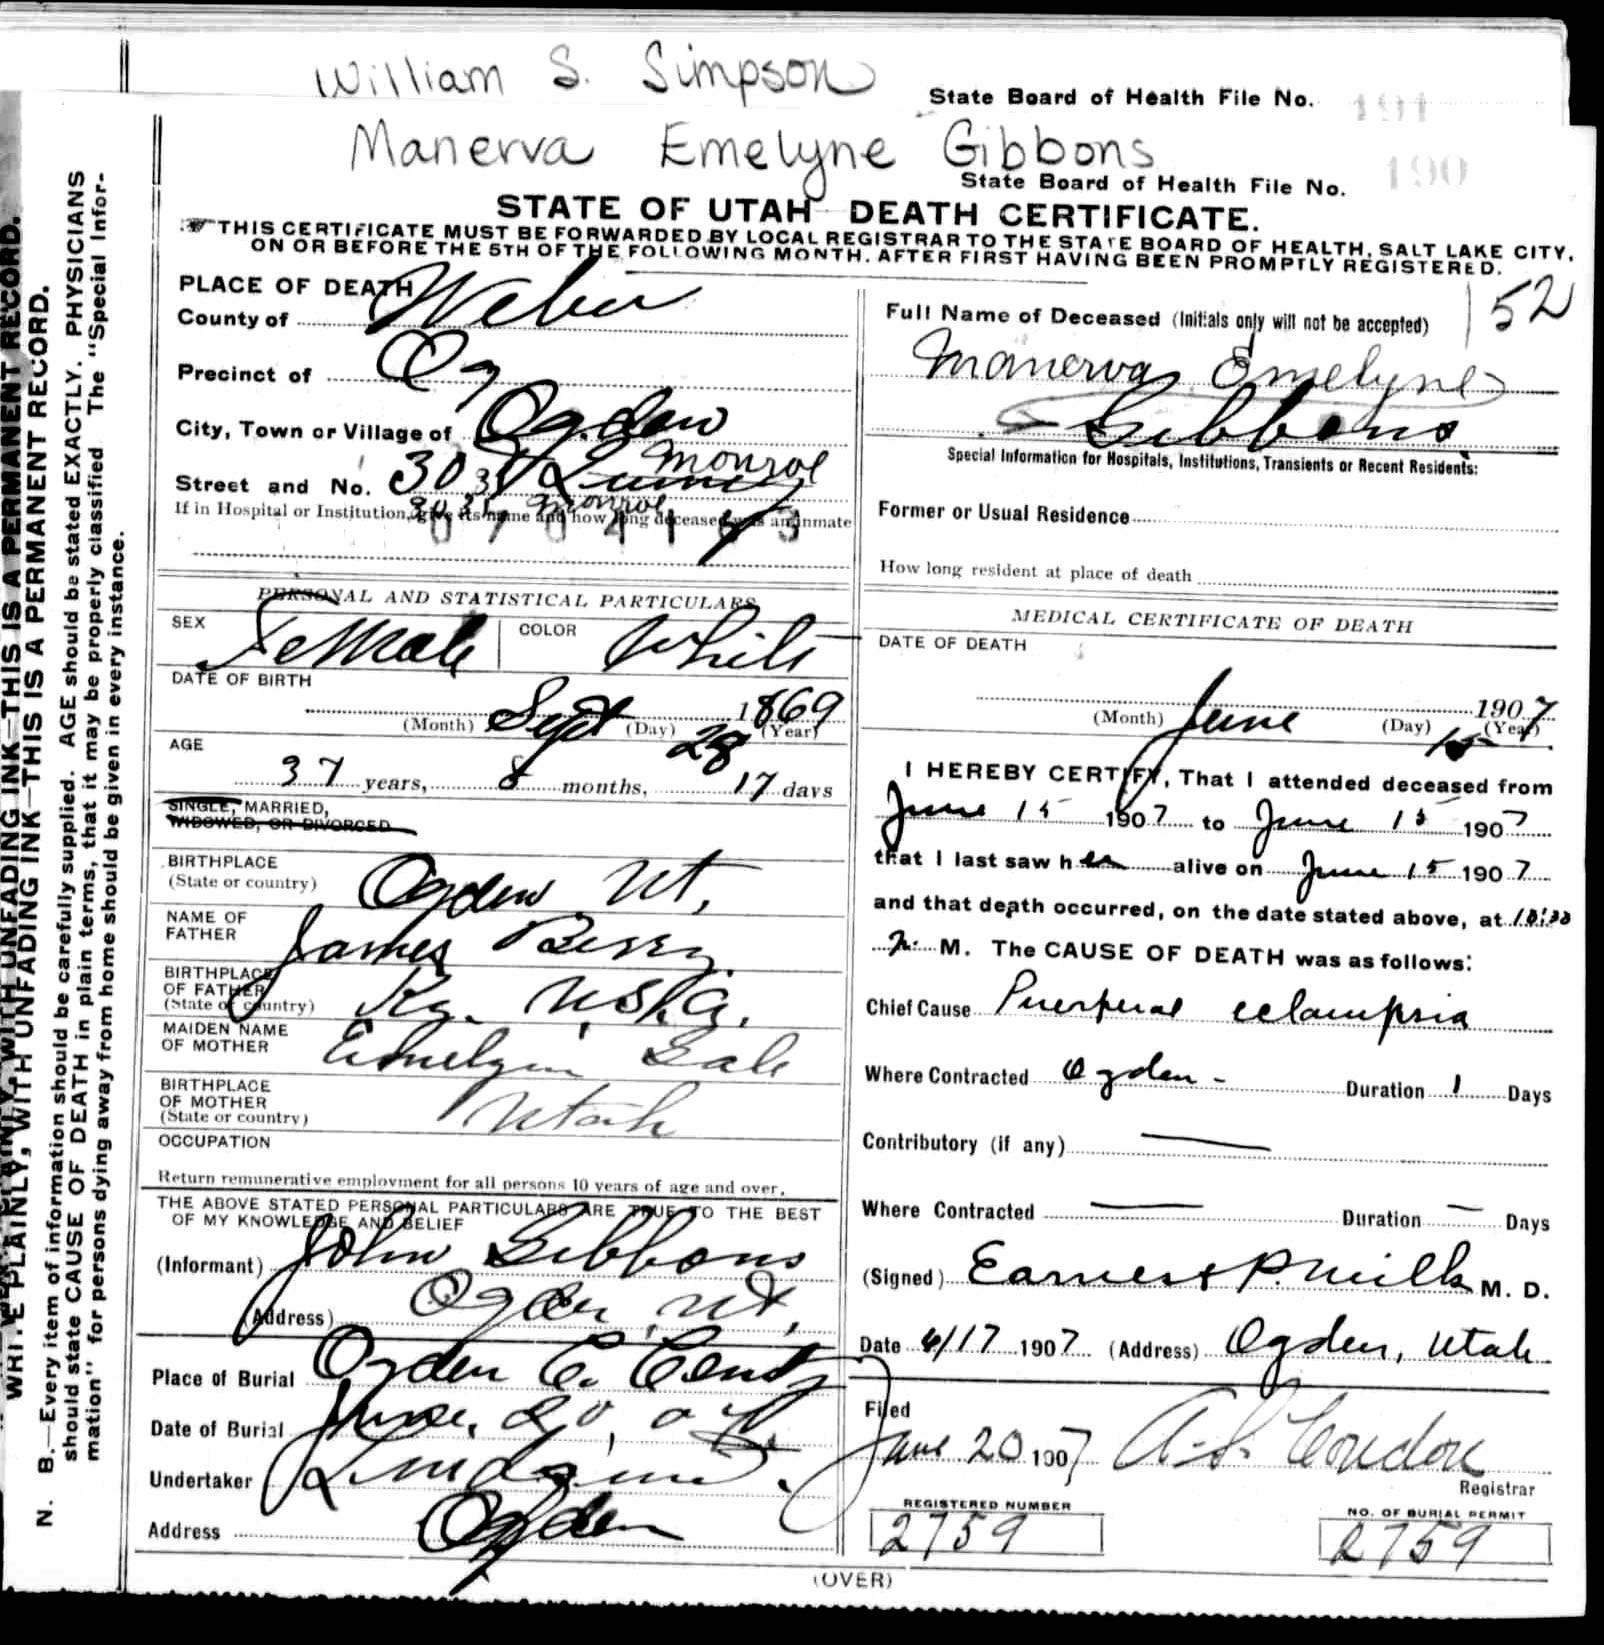 William S. Simpson
State Board of Health File No. 191
Manerva Emelyne Gibbons
State Board of Health File No. 190
STATE OF UTAH DEATH CERTIFICATE.
THIS CERTIFICATE MUST BE FORWARDED BY LOCAL REGISTRAR TO THE STATE BOARD OF HEALTH, SALT LAKE CITY,
ON OR BEFORE THE 5TH OF THE FOLLOWING MONTH, AFTER FIRST HAVING BEEN PROMPTLY REGISTERED.
WRITE PLAINLY, WITH UNFADING INK—THIS IS A PERMANENT RECORD.
WRITE PLAINLY, WITH UNFADING INK—THIS IS A PERMANENT RECORD.
N. B.—Every item of information should be carefully supplied. AGE should be stated EXACTLY. PHYSICIANS
should state CAUSE OF DEATH in plain terms, that it may be properly classified The "Special Infor-
mation" for persons dying away from home should be given in every instance.
PLACE OF DEATH
County of Weber
Precinct of Og
City, Town or Village of Ogden
Monroe
Street and No. 303
If in Hospital or Institution, give its name and how long deceased was an inmate
3035 Monroe
PERSONAL AND STATISTICAL PARTICULARS
SEX Female COLOR White
DATE OF BIRTH
(Month) Sept (Day) 28 1869 (Year)
AGE
37 years, 8 months, 17 days
SINGLE, MARRIED,
WIDOWED, OR DIVORCED
BIRTHPLACE
(State or country) Ogden Ut,
NAME OF
FATHER James Berry
BIRTHPLACE
OF FATHER
(State or country) Ky. U.S.A.
MAIDEN NAME
OF MOTHER Emelyn Gale
BIRTHPLACE
OF MOTHER
(State or country) Utah
OCCUPATION
Return remunerative employment for all persons 10 years of age and over.
THE ABOVE STATED PERSONAL PARTICULARS ARE TRUE TO THE BEST
OF MY KNOWLEDGE AND BELIEF
(Informant) John Gibbons
(Address) Ogden, Ut,
Place of Burial Ogden C. Cemty
Date of Burial June, 20, 07
Undertaker
Address Ogden
52
Full Name of Deceased (Initials only will not be accepted)
Manerva Emelyne
Gibbons
Special Information for Hospitals, Institutions, Transients or Recent Residents:
Former or Usual Residence
How long resident at place of death
MEDICAL CERTIFICATE OF DEATH
DATE OF DEATH
(Month) June (Day) 15 1907 (Year)
I HEREBY CERTIFY, That I attended deceased from
June 15 1907 to June 15 1907
that I last saw h er alive on June 15 1907
and that death occurred, on the date stated above, at 10:30
P. M. The CAUSE OF DEATH was as follows:
Chief Cause Puerperal eclampsia
Where Contracted Ogden - Duration 1 Days
Contributory (if any) —
Where Contracted — Duration — Days
(Signed) Earnest P. Mills M. D.
Date 6/17 1907 (Address) Ogden, Utah
Filed
June 20 1907 A. S. Condon
Registrar
REGISTERED NUMBER
2759
NO. OF BURIAL PERMIT
2759
(OVER)